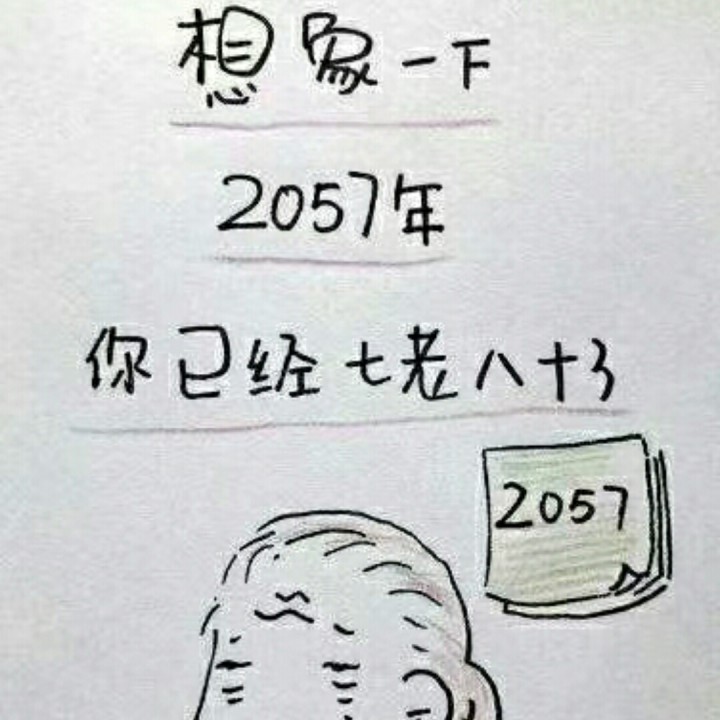 想象一下
2057年
你已经七老八十了
2057